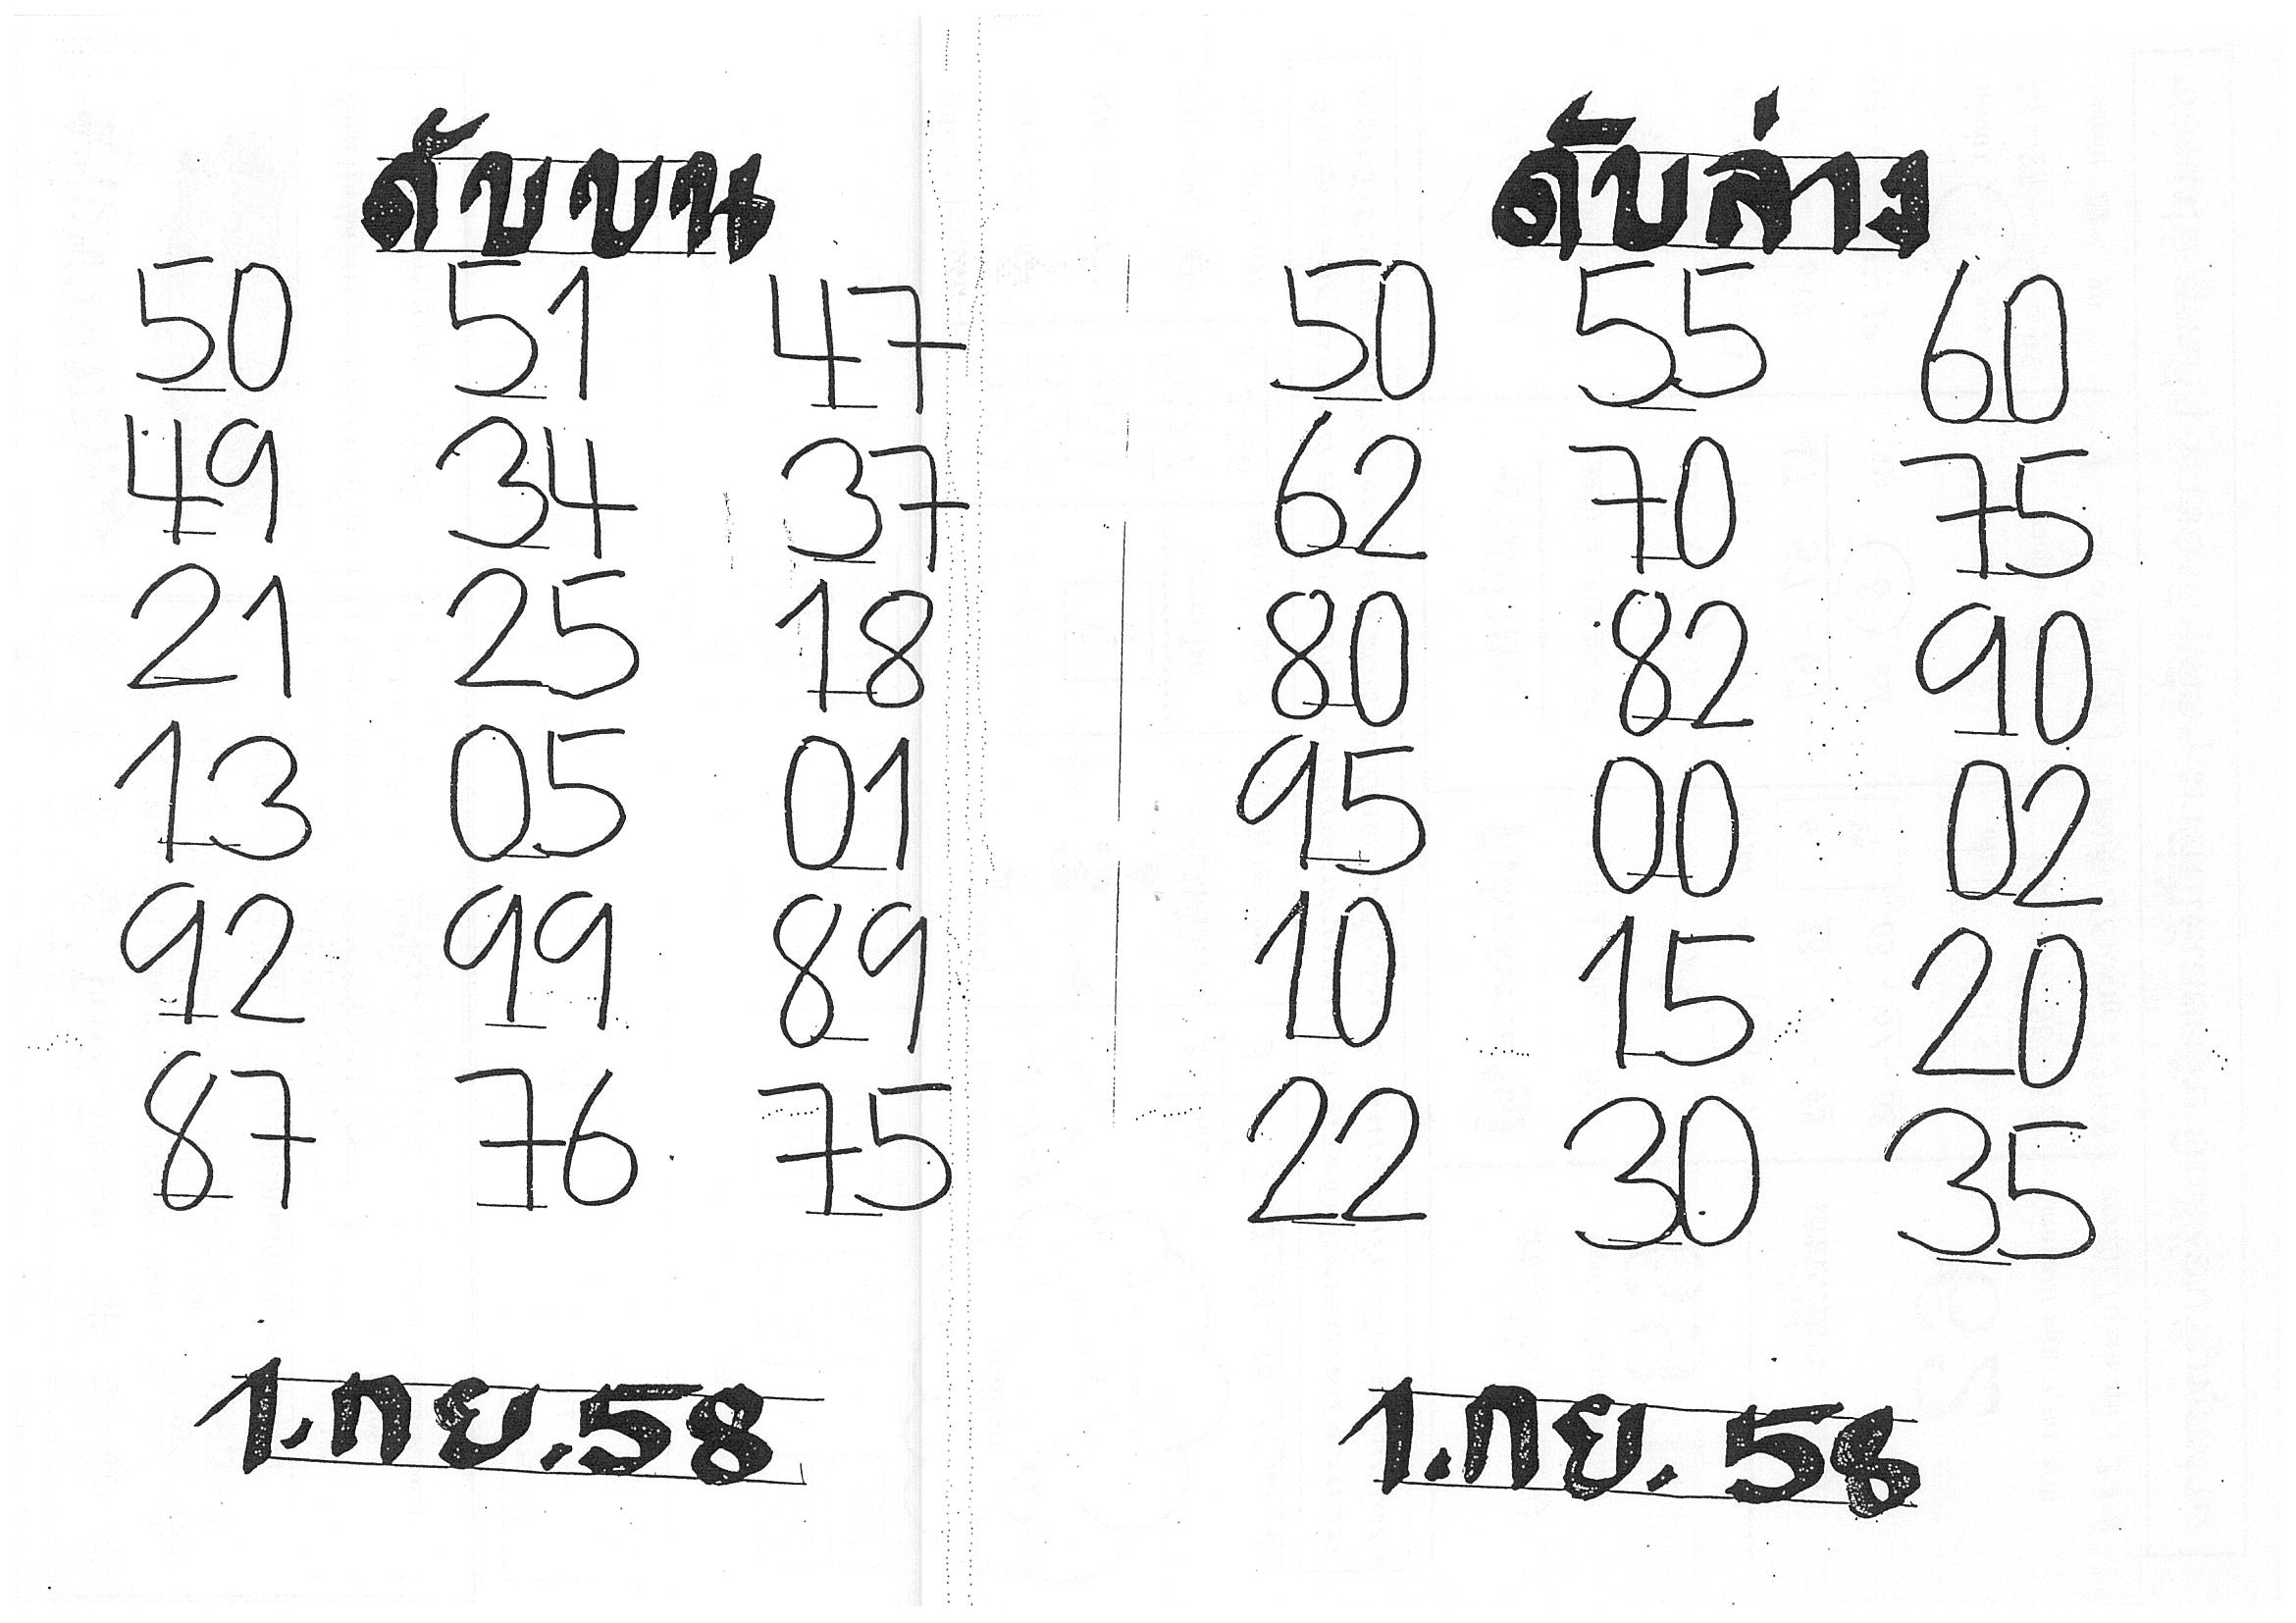 ดับบน
50 51 47
49 34 37
21 25 18
13 05 01
92 99 89
87 76 75
1.กย.58
ดับล่าง
50 55 60
62 70 75
80 82 90
95 00 02
10 15 20
22 30 35
1.กย.58